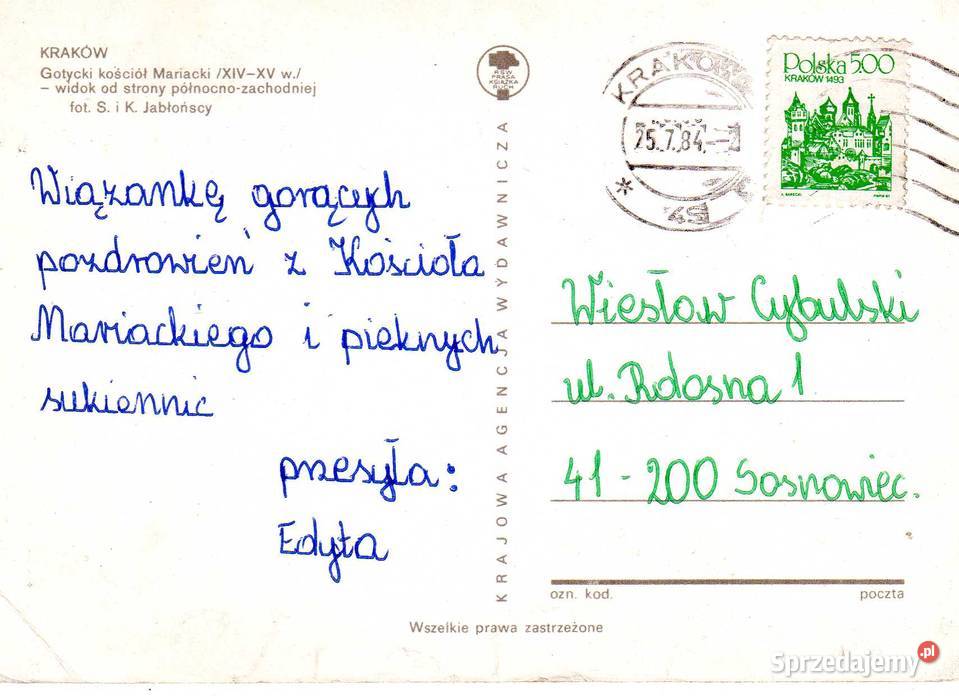 KRAKÓW
Gotycki kościół Mariacki /XIV–XV w./
– widok od strony północno-zachodniej
fot. S. i K. Jabłońscy
Wiązankę gorących
pozdrowień z Kościoła
Mariackiego i pięknych
sukiennic
przesyła:
Edyta
RSW
PRASA
KSIĄŻKA
RUCH
KRAJOWA AGENCJA WYDAWNICZA
KRAKÓW
25.7.84
Polska 500
KRAKÓW 1493
Wiesław Cybulski
ul. Rdosna 1
41-200 Sosnowiec.
ozn. kod.
poczta
Wszelkie prawa zastrzeżone
Sprzedajemy.pl